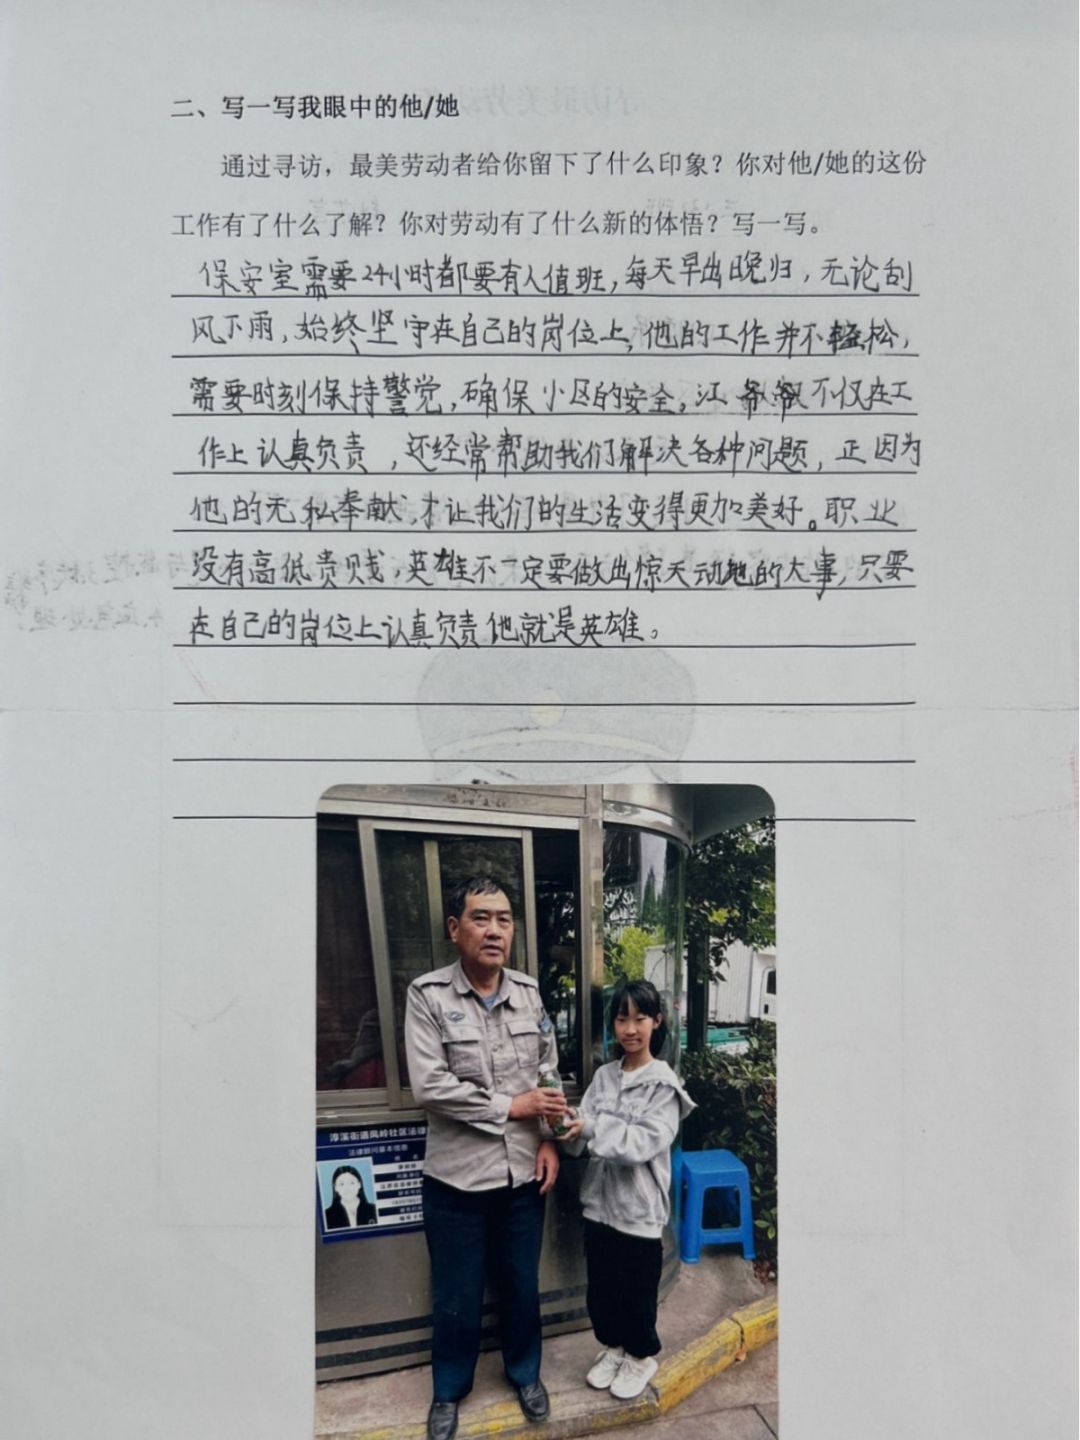 二、写一写我眼中的他/她
通过寻访，最美劳动者给你留下了什么印象？你对他/她的这份
工作有了什么了解？你对劳动有了什么新的体悟？写一写。
保安室需要24小时都要有人值班，每天早出晚归，无论刮
风下雨，始终坚守在自己的岗位上，他的工作并不轻松，
需要时刻保持警觉，确保小区的安全。江爷爷不仅在工
作上认真负责，还经常帮助我们解决各种问题，正因为
他的无私奉献，才让我们的生活变得更加美好。职业
没有高低贵贱，英雄不一定要做出惊天动地的大事，只要
在自己的岗位上认真负责他就是英雄。
淳溪街道凤岭社区法律
法律顾问基本信息